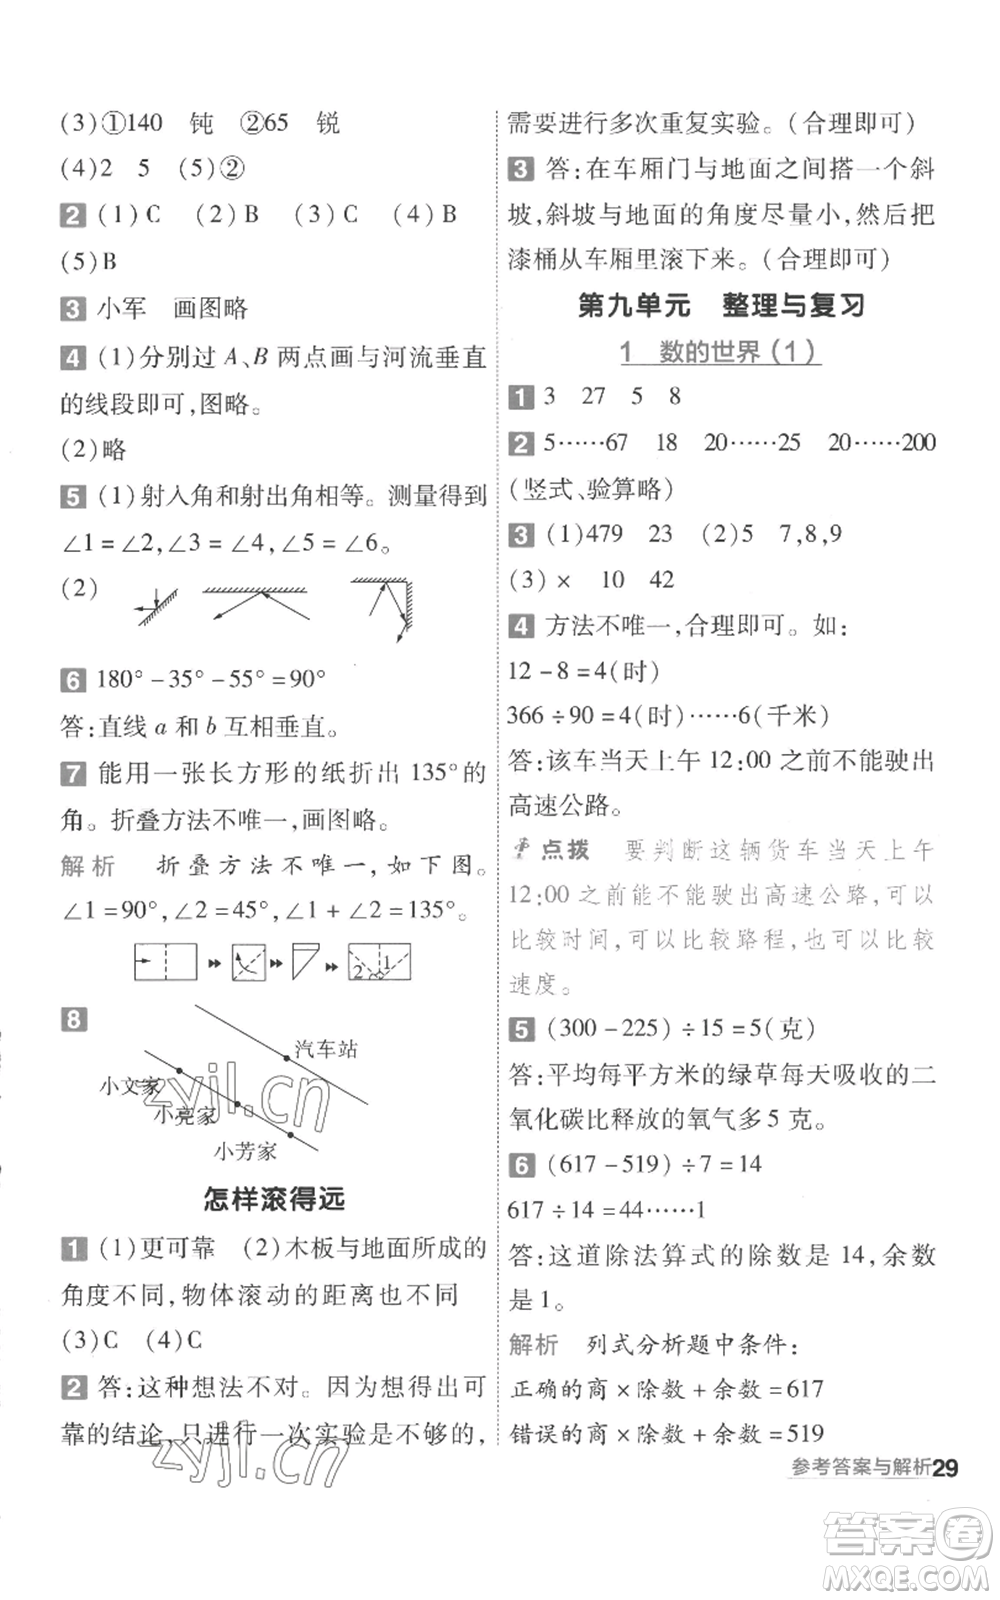 (3)①140　钝　②65　锐
(4)2　5　(5)②
2 (1)C　(2)B　(3)C　(4)B
(5)B
3 小军　画图略
4 (1)分别过 A、B 两点画与河流垂直
的线段即可,图略。
(2)略
5 (1)射入角和射出角相等。测量得到
∠1=∠2,∠3=∠4,∠5=∠6。
(2)
6 180°-35°-55°=90°
答:直线 a 和 b 互相垂直。
7 能用一张长方形的纸折出 135°的
角。折叠方法不唯一,画图略。
解析　折叠方法不唯一,如下图。
∠1=90°,∠2=45°,∠1+∠2=135°。
2 1
8
汽车站
小文家
小亮家
小芳家
zyjl.cn
怎样滚得远
1 (1)更可靠　(2)木板与地面所成的
角度不同,物体滚动的距离也不同
(3)C　(4)C
2 答:这种想法不对。因为想得出可
靠的结论,只进行一次实验是不够的,
zyjl.cn
需要进行多次重复实验。(合理即可)
3 答:在车厢门与地面之间搭一个斜
坡,斜坡与地面的角度尽量小,然后把
漆桶从车厢里滚下来。(合理即可)
第九单元　整理与复习
1　数的世界(1)
1 3　27　5　8
2 5……67　18　20……25　20……200
(竖式、验算略)
3 (1)479　23　(2)5　7,8,9
(3)×　10　42
4 方法不唯一,合理即可。如:
12-8=4(时)
366÷90=4(时)……6(千米)
答:该车当天上午 12:00 之前不能驶出
高速公路。
点拨　要判断这辆货车当天上午
12:00 之前能不能驶出高速公路,可以
比较时间,可以比较路程,也可以比较
速度。
5 (300-225)÷15=5(克)
答:平均每平方米的绿草每天吸收的二
氧化碳比释放的氧气多 5 克。
6 (617-519)÷7=14
617÷14=44……1
答:这道除法算式的除数是 14,余数
是 1。
解析　列式分析题中条件:
正确的商×除数+余数=617
错误的商×除数+余数=519
参考答案与解析 29
答案卷
MXQE.COM